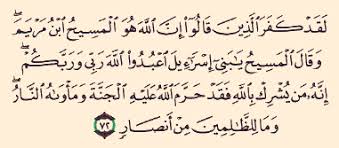 لَقَدْ كَفَرَ ٱلَّذِينَ قَالُوٓا۟ إِنَّ ٱللَّهَ هُوَ ٱلْمَسِيحُ ٱبْنُ مَرْيَمَ ۖ
وَقَالَ ٱلْمَسِيحُ يَٰبَنِىٓ إِسْرَٰٓءِيلَ ٱعْبُدُوا۟ ٱللَّهَ رَبِّى وَرَبَّكُمْ ۖ
إِنَّهُۥ مَن يُشْرِكْ بِٱللَّهِ فَقَدْ حَرَّمَ ٱللَّهُ عَلَيْهِ ٱلْجَنَّةَ وَمَأْوَىٰهُ ٱلنَّارُ ۖ
وَمَا لِلظَّٰلِمِينَ مِنْ أَنصَارٍ ٧٢